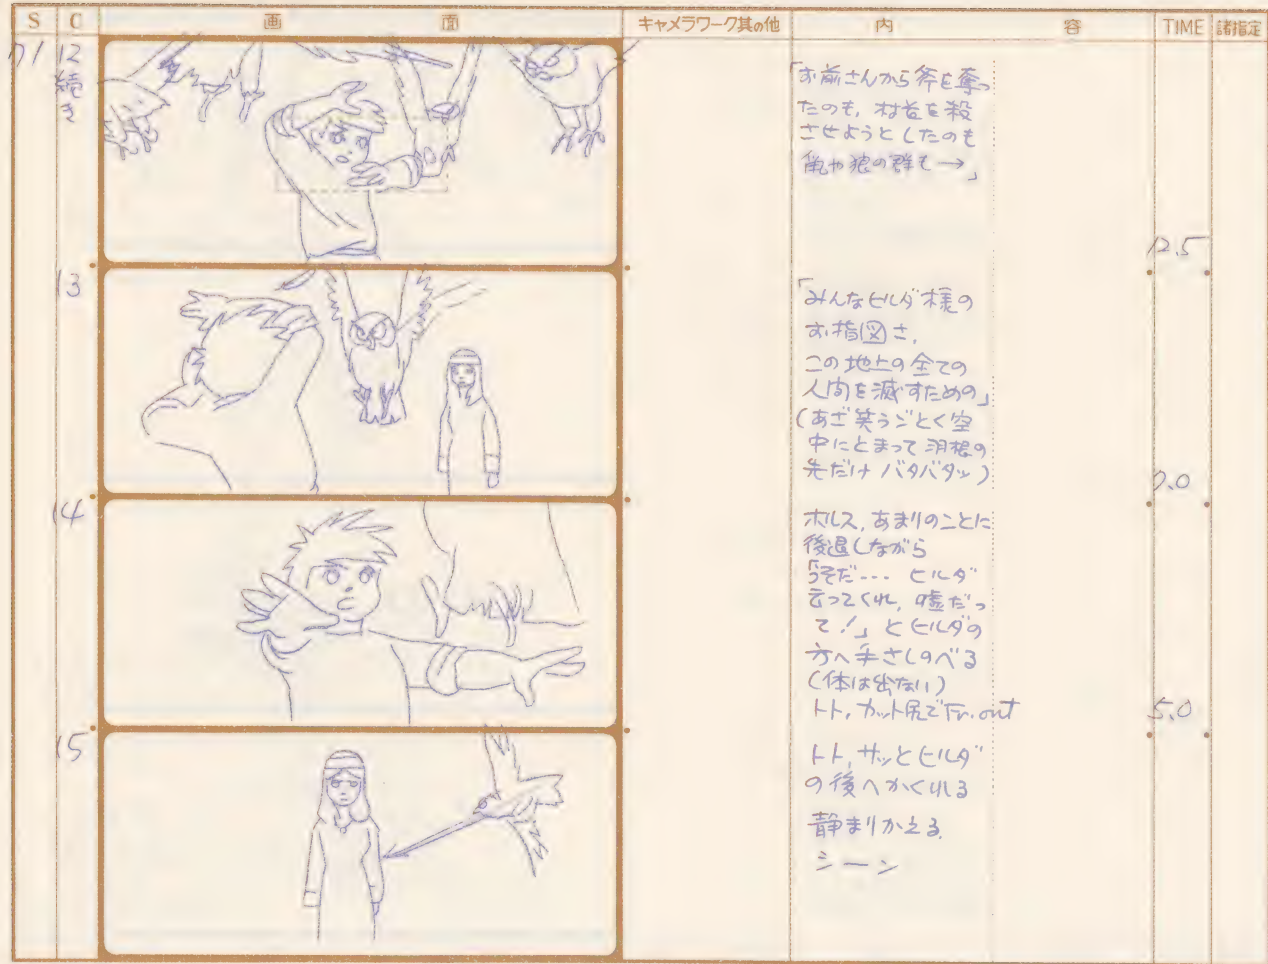 S C 画面 キャメラワーク其の他 内容 TIME 諸指定
71 12
続き
「お前さんから斧を奪っ
たのも、村長を殺
させようとしたのも
鼠や狼の群も→」
12.5
13
「みんなヒルダ様の
お指図さ、
この地上の全ての
人間を滅すための」
(あざ笑うごとく空
中にとまって羽根の
先だけバタバタッ)
7.0
14
ホルス、あまりのことに
後退しながら
「うそだ… ヒルダ
云ってくれ、嘘だっ
て!」とヒルダの
方へ手さしのべる
(体は出ない)
トト、カット尻でFr.out
5.0
15
トト、サッとヒルダ
の後へかくれる
静まりかえる、
シーン